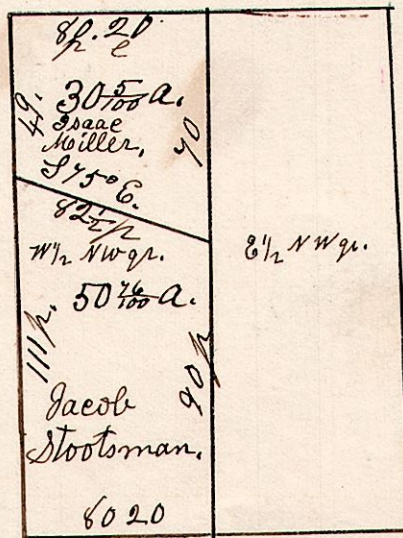 80.20
49. 30 5/100 a. 70
Isaac
Miller,
S 75° E.
82 1/2 p
W 1/2 NW qr.
50 76/100 a.
111 p. 90 p
Jacob
Stootsman.
8020
E 1/2 NW qr.